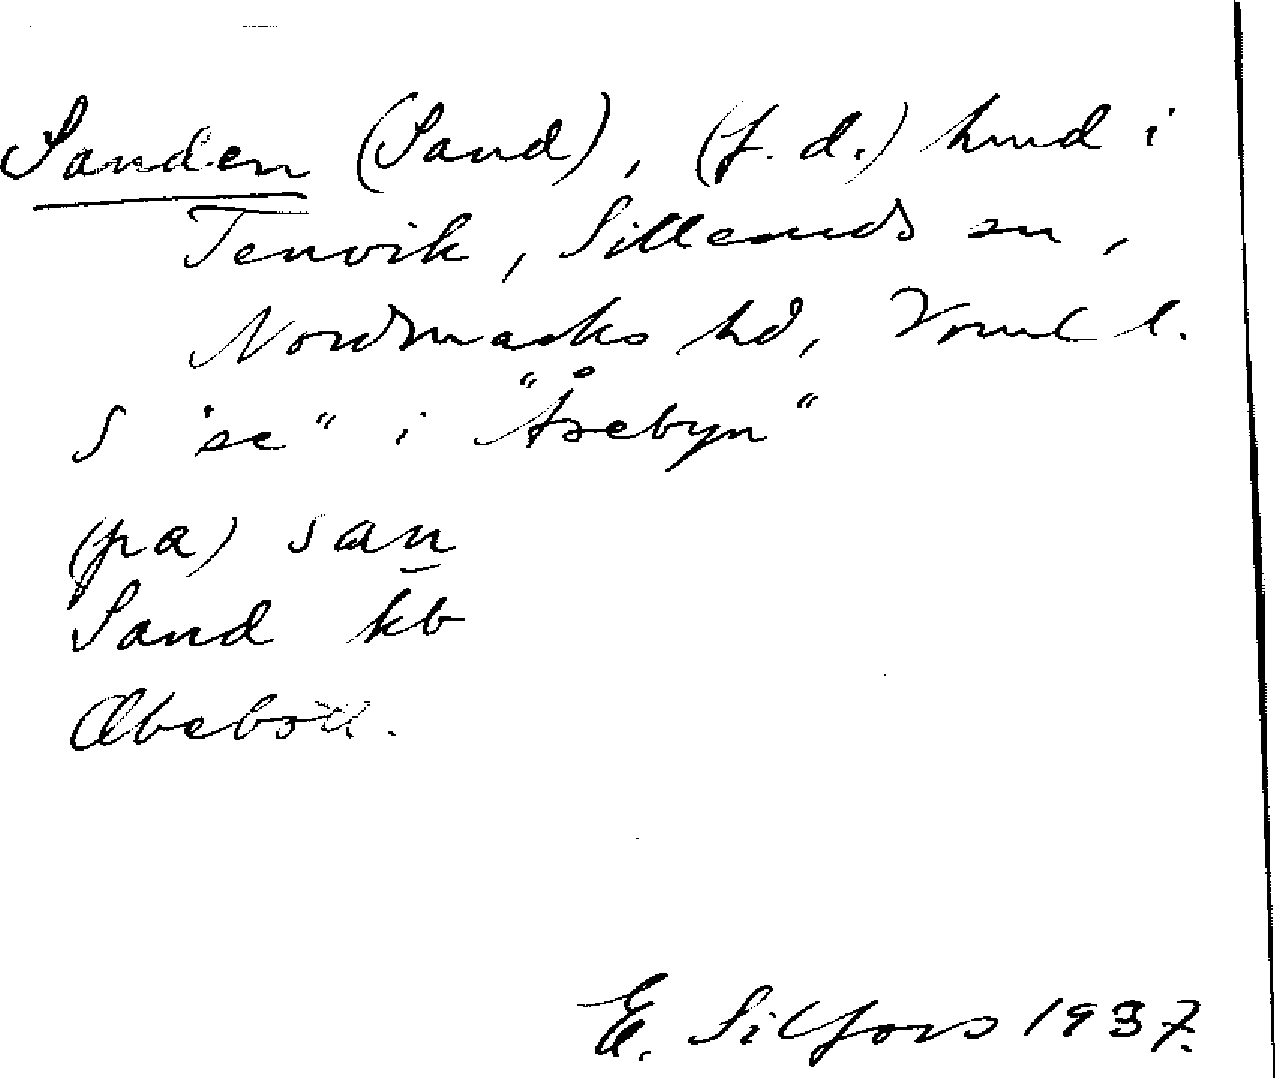 Sanden (Sand), (f.d.) hmd i
Tenvik, Silleruds sn,
Nordmarks hd, Vrml l.
S "se" i "Årebyn"
(pa) san
Sand kb
Obebott.
E. Silfors 1937.